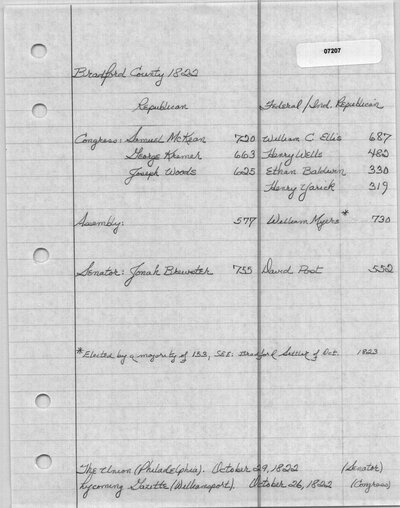 07207
Bradford County 1822
Republican Federal/Ind. Republican
Congress: Samuel McKean 720 William C Ellis 687
George Kremer 663 Henry Wells 482
Joseph Woods 625 Ethan Baldwin 330
Henry Yarick 319
Assembly: 577 William Myers* 730
Senator: Jonah Brewster 755 David Post 552
*Elected by a majority of 153, SEE: Bradford Settler of Oct. 1823
The Union (Philadelphia). October 29, 1822 (Senator)
Lycoming Gazette (Williamsport). October 26, 1822 (Congress)